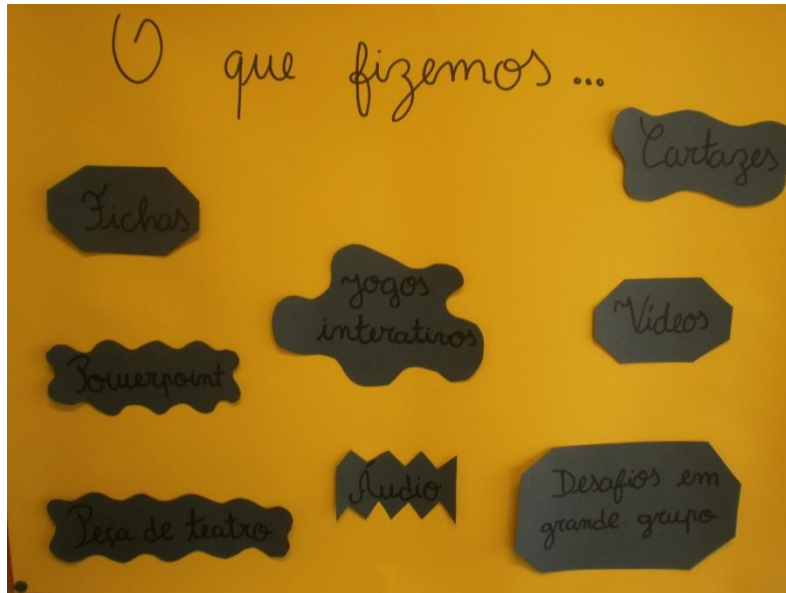 O que fizemos...
Cartazes
Fichas
Jogos
interativos
Vídeos
Powerpoint
Áudio
Desafios em
grande grupo
Peça de teatro